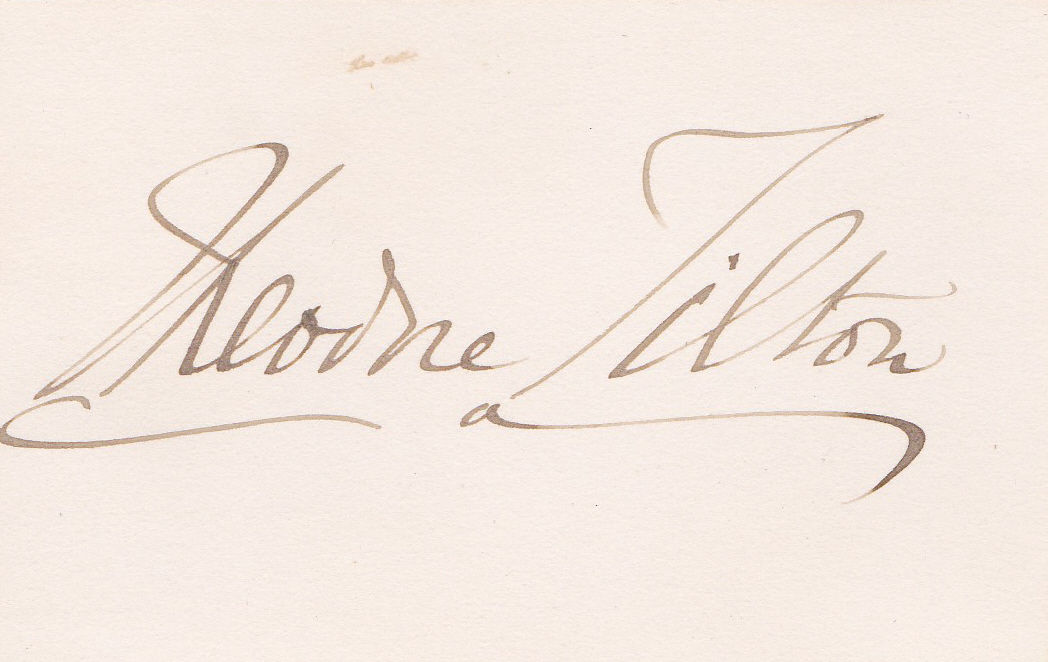 Theodore Tilton